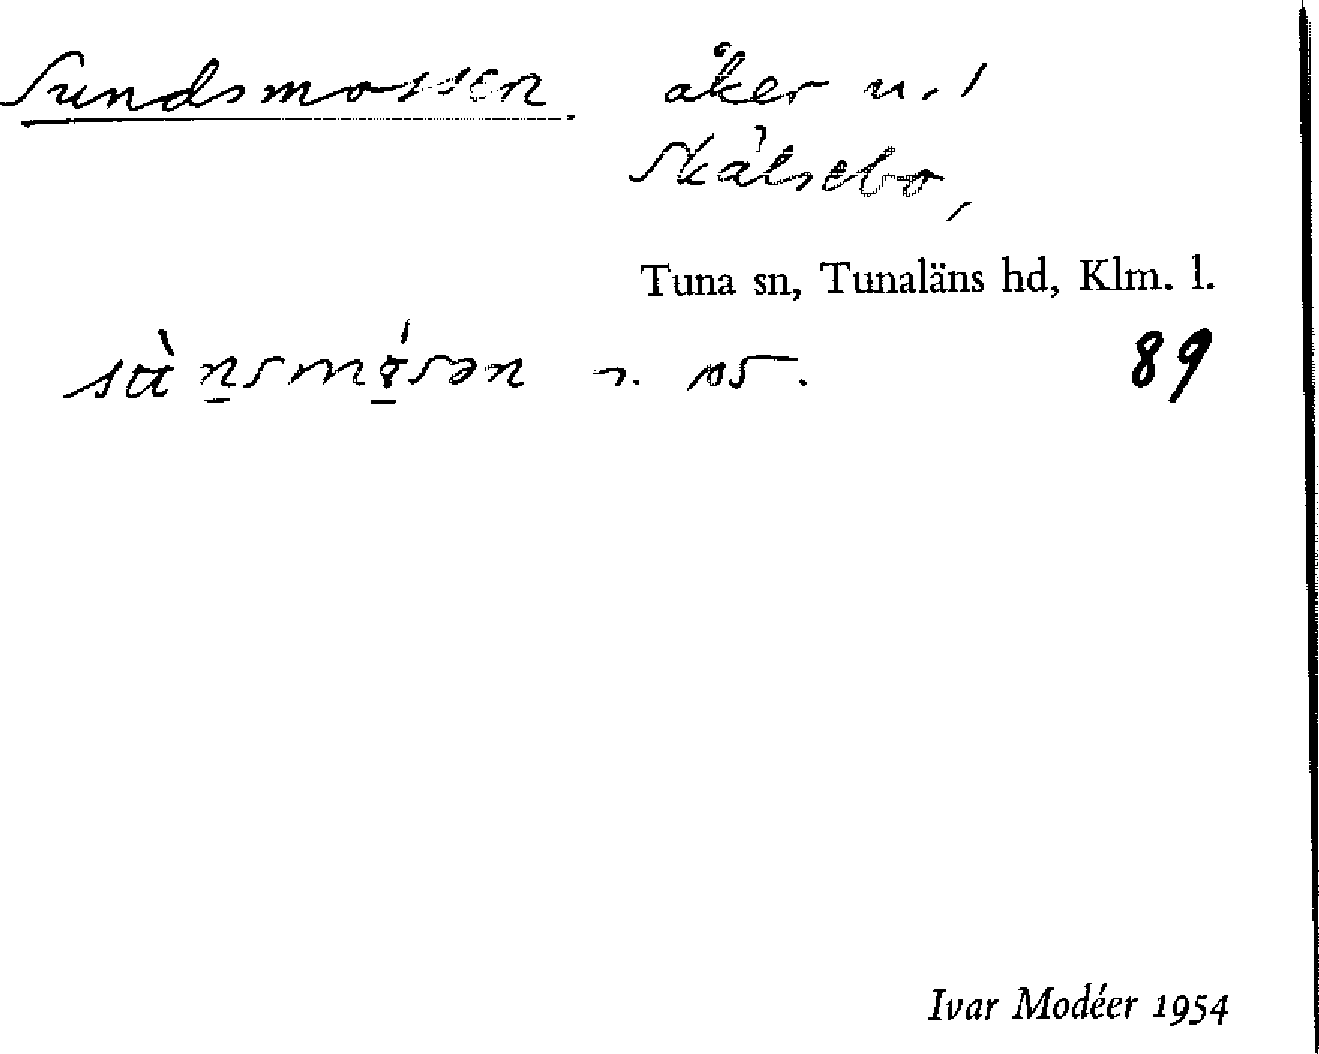 Sundsmossen. åker u. l
Skålsebo,
Tuna sn, Tunaläns hd, Klm. l.
89
Ivar Modéer 1954